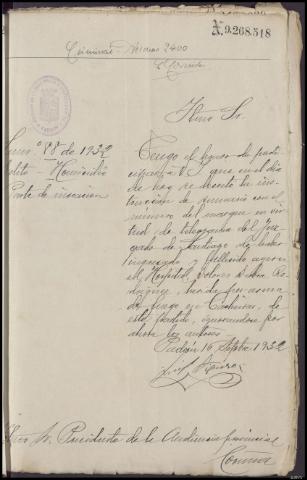 N.9.268.518
Criminal
Ilmo Sr.
Sum.º 88 de 1932
delito - Homicidio
Parte de incoación
Tengo el honor de parti
cipar a V.I. que en el día
de hoy se inicia la ins
trucción de sumario con el
número del margen en vir
tud de telegrama del Juz
gado de Santiago de haber
ingresado y fallecido ayer en
el Hospital, Dolores
herida por arma
de fuego en
este partido, ignorándose por
ahora los autores.
Padrón 16 Septbre 1932
Ilmo Sr. Presidente de la Audiencia provincial
Coruña